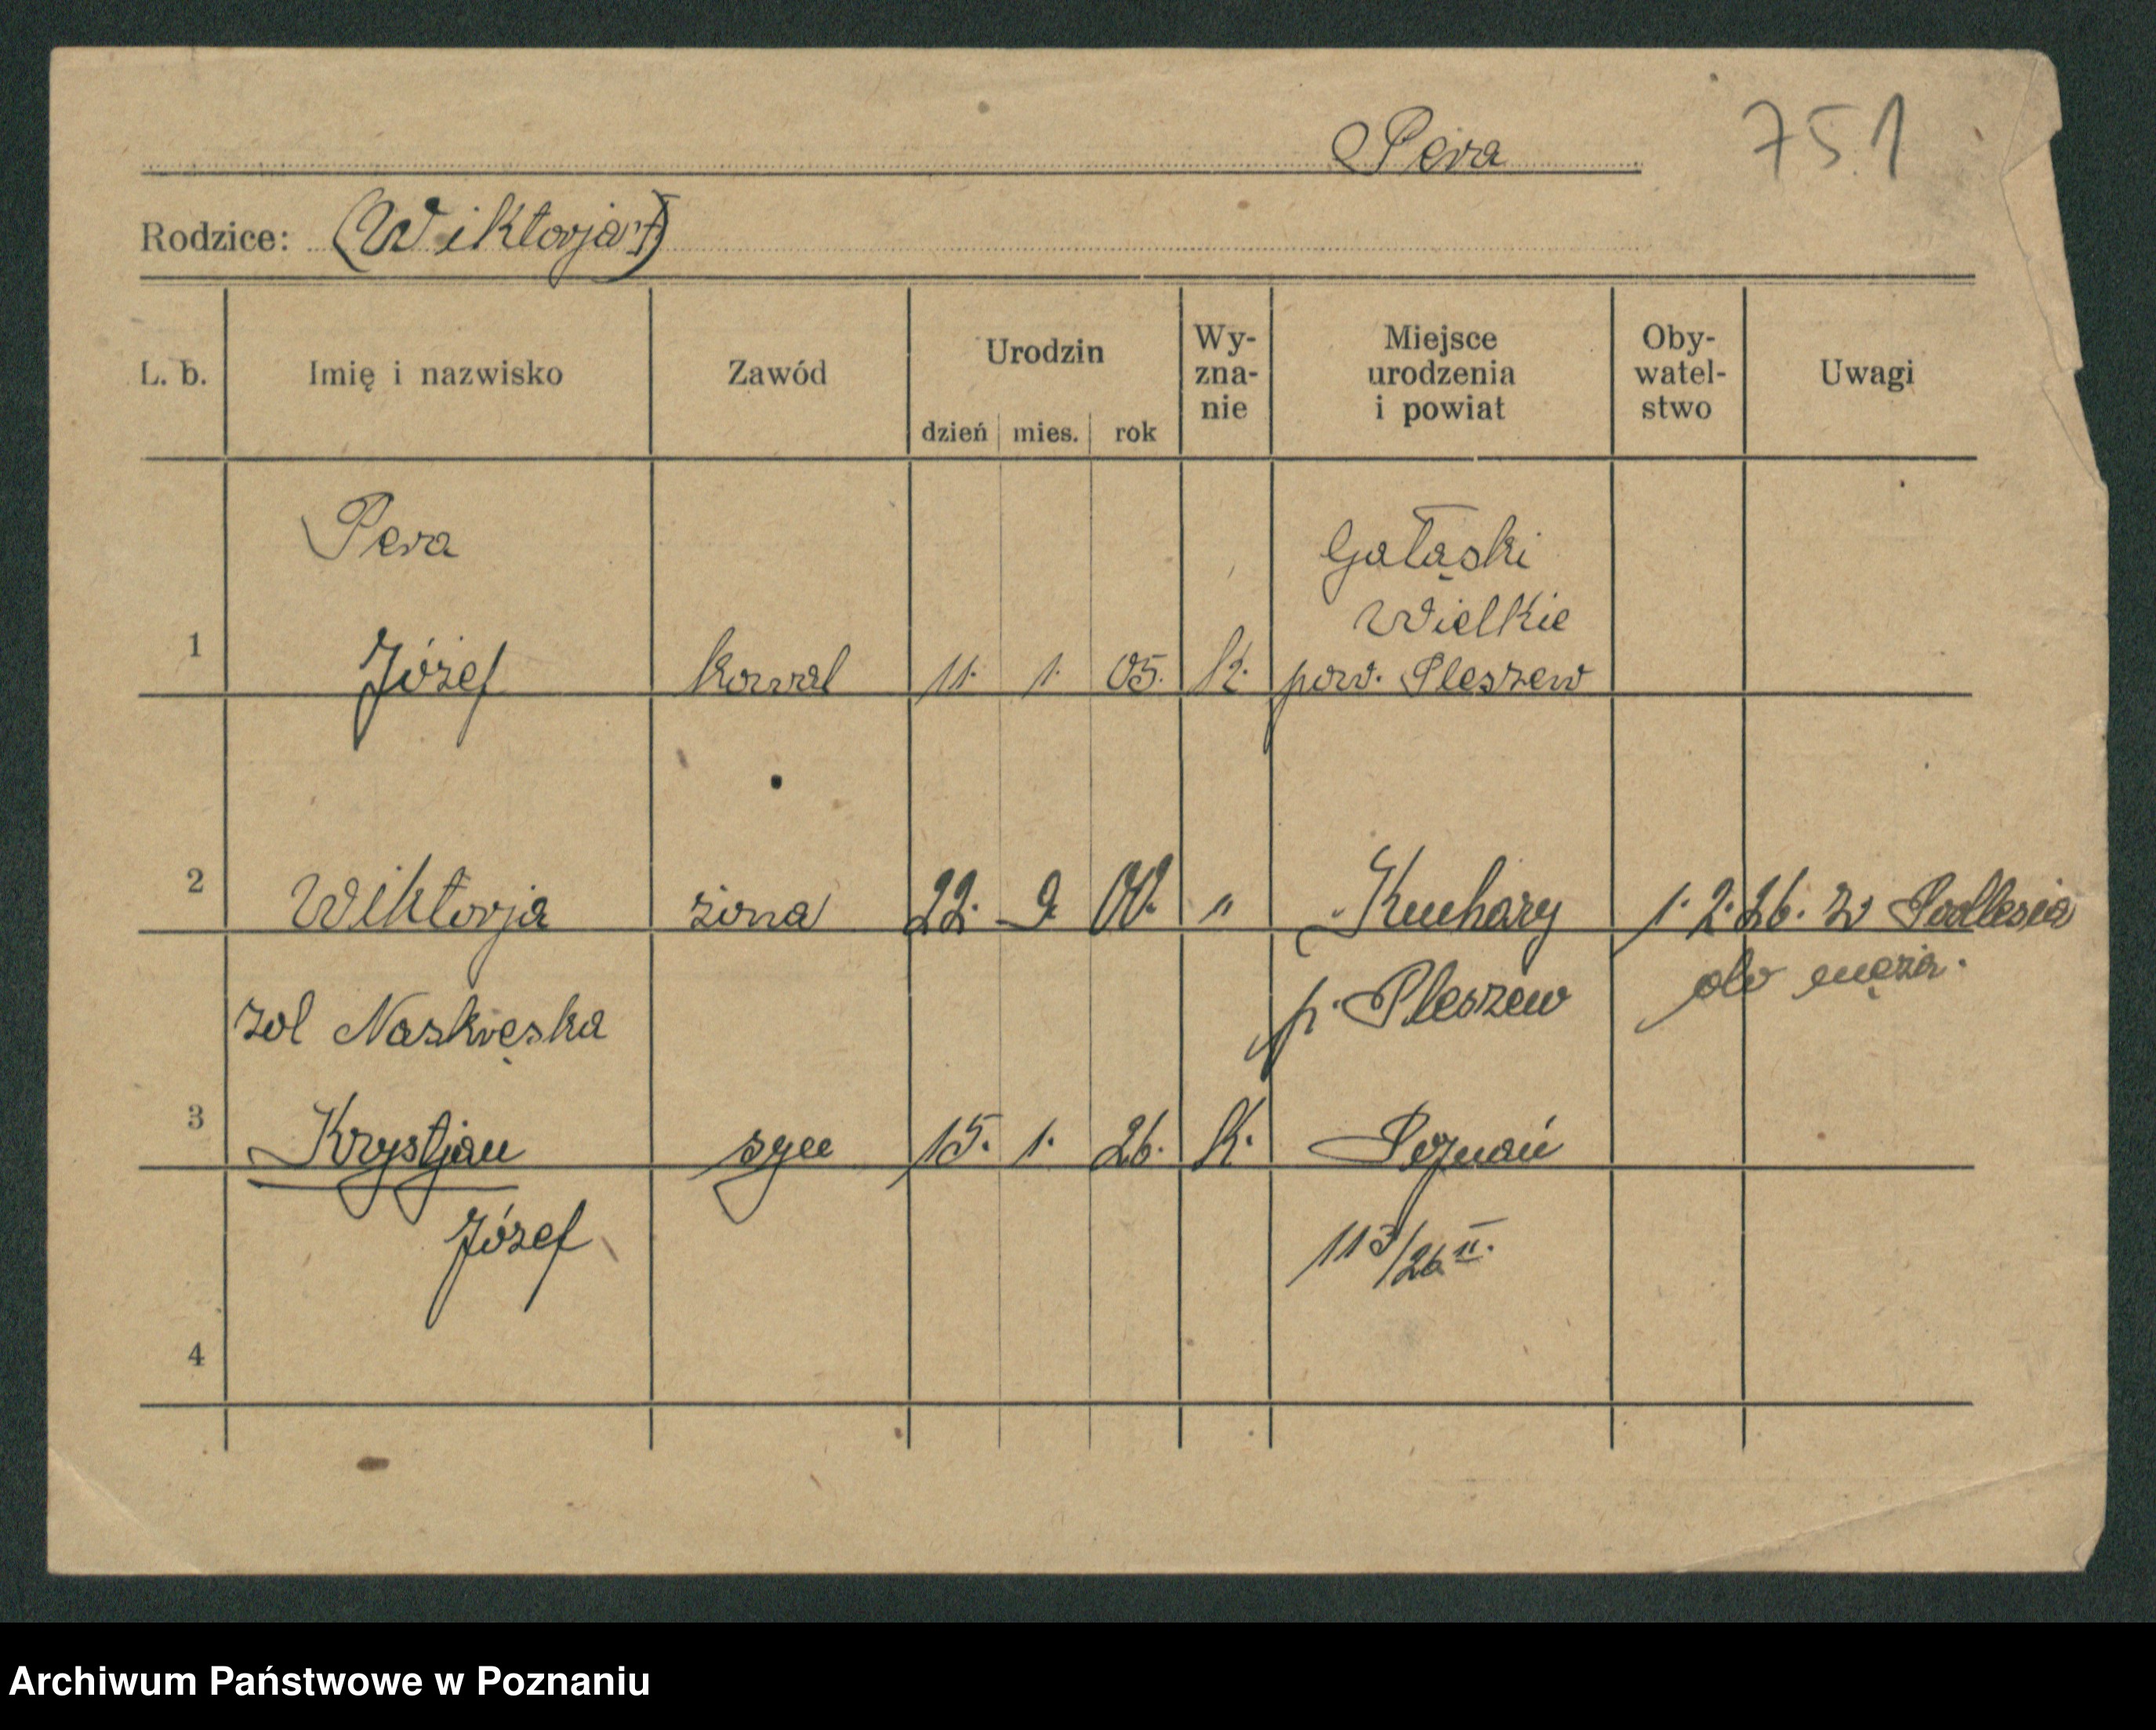 Pera
751
Rodzice: (Wiktorja †)
L. b. Imię i nazwisko Zawód Urodzin dzień mies. rok Wy-zna-nie Miejsce urodzenia i powiat Oby-watel-stwo Uwagi
Pera Gałąski
Wielkie
1 Józef kowal 11. 1. 05. K. pow. Pleszew
2 Wiktorja żona 22. 9. 00. " Kuchary 1. 2. 26. z Podlesia
do męża.
zd Naskręska p. Pleszew
3 Krystjan syn 15. 1. 26. K. Poznań
Józef 113/26 II.
4
Archiwum Państwowe w Poznaniu